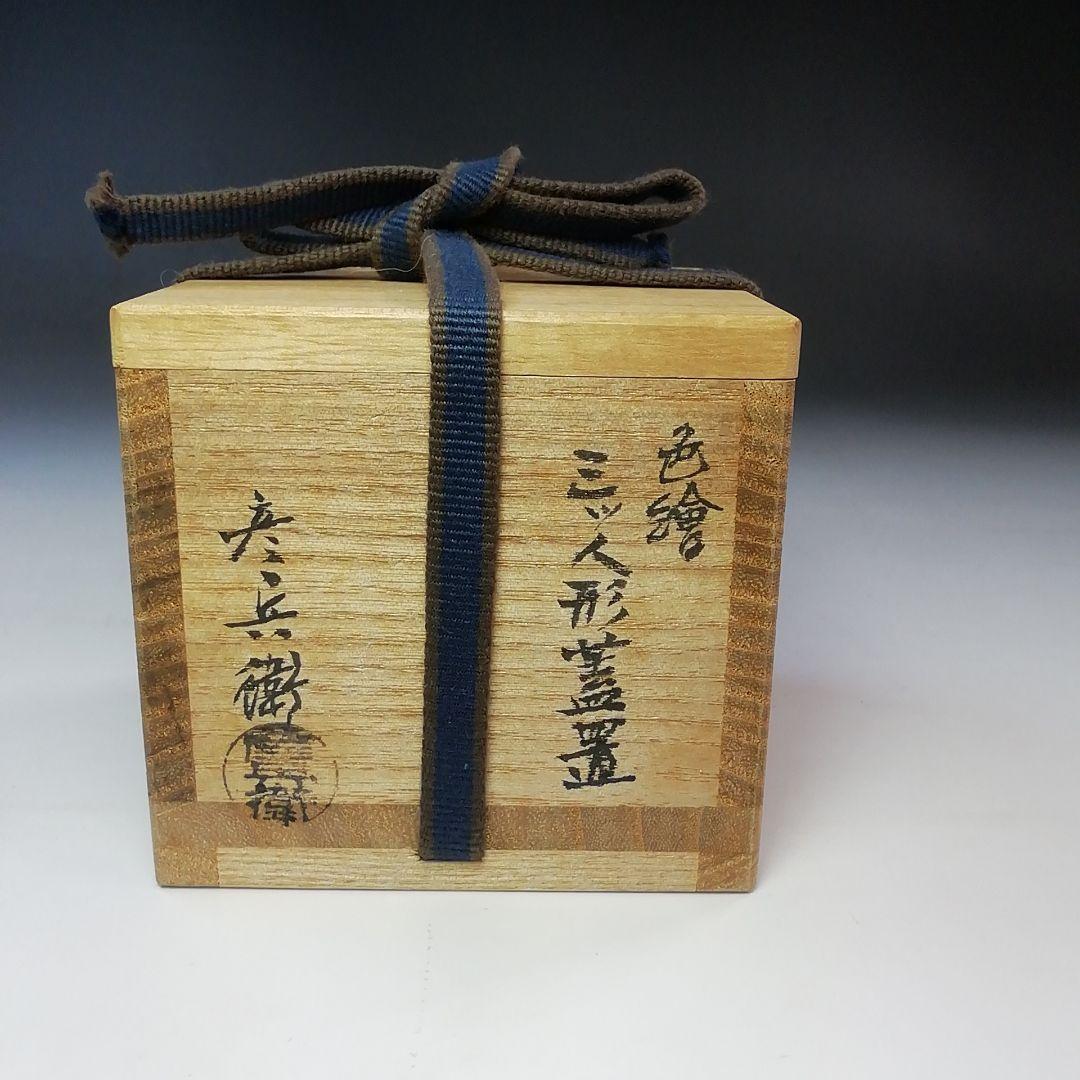 色繪
三ッ人形蓋置
彦兵衛